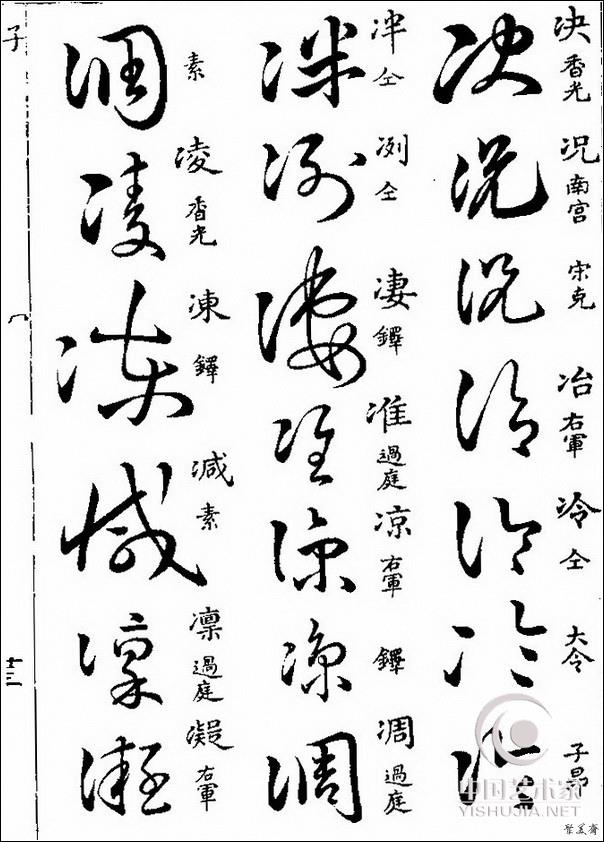 决 香光
况 南宫
宋克
冶 右軍
冷 仝
大令
子昂
冸 仝
冽 仝
凄 鐸
准 過庭
凉 右軍
鐸
凋 過庭
素
凌 香光
凍 鐸
減 素
凛 過庭
凝 右軍
子
十三
中国艺术家
YISHUJIA.NET
聚美齋